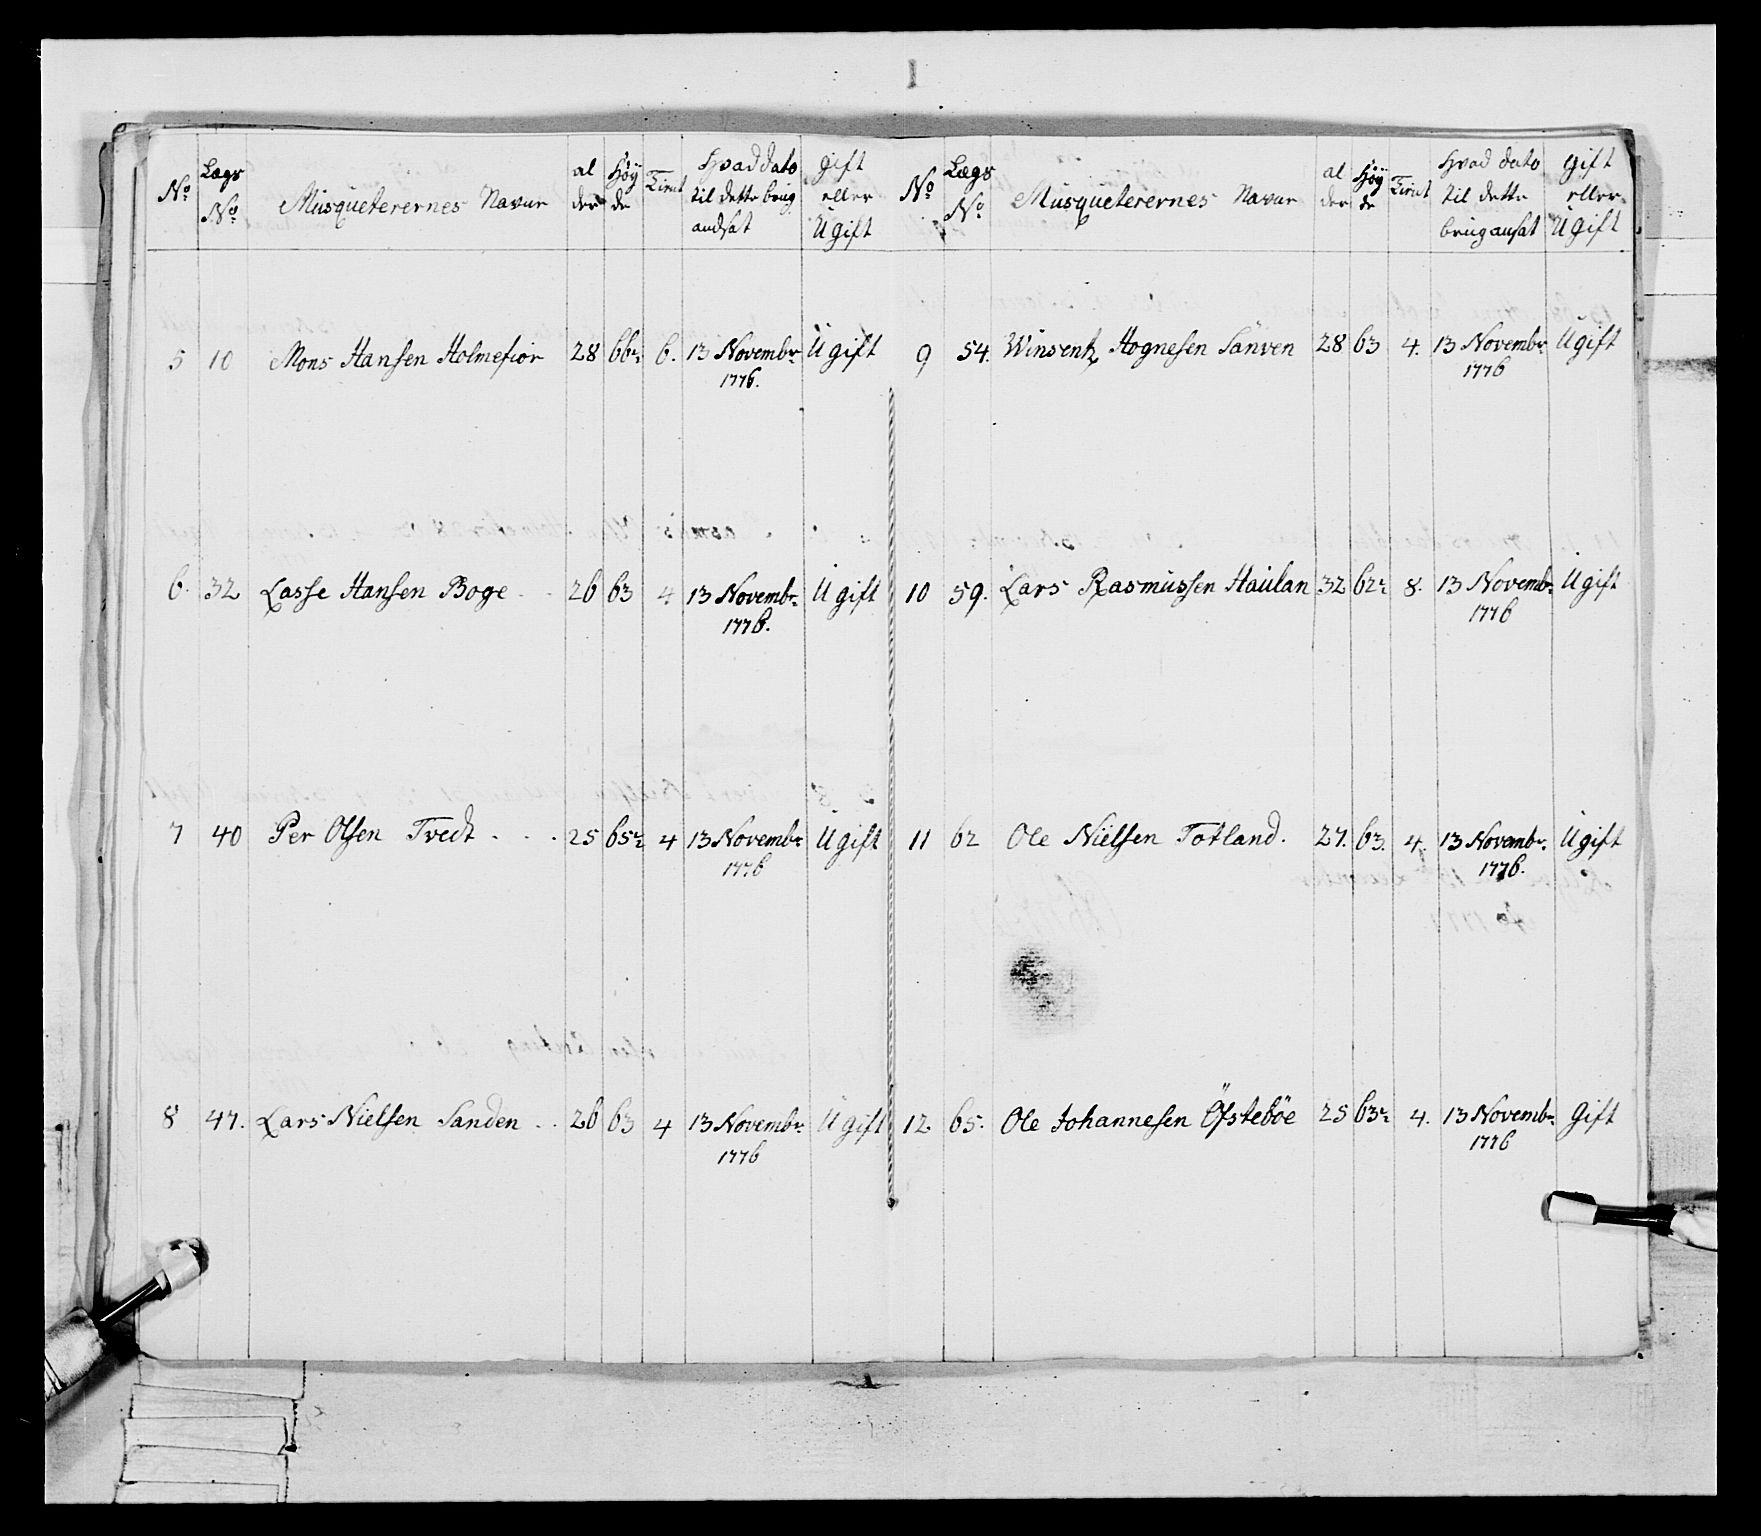 No Lægs No Musqueterernes Navne al der Høy de Tient Hvad dato til dette brug andsat gift eller Ugift
5 10 Mons Hansen Holmefior 28 66½ 6. 13 Novembr. Ugift
1776.
6. 32 Lasse Hansen Boge . . 26 63 4. 13 Novembr. Ugift
1776.
7 40 Per Olsen Tvedt . . . 25 65½ 4 13 Novembr. Ugift
1776
8 47. Lars Nielsen Sanden . . 26 63 4 13 Novembr. Ugift
1776
No Lægs No Musqueterernes Navne al der Høy de Tient Hvad dato til dette brug ansat gift eller Ugift
9 54. Winsentz Hognesen Sanven 28 63 4. 13 Novembr. Ugift
1776
10 59. Lars Rasmussen Haulan 32 62½ 8. 13 Novembr. Ugift
1776
11 62 Ole Nielsen Totland. 27. 63. 4. 13 Novembr. Ugift
1776.
12 65. Ole Johannesen Öfstebøe 25 63½ 4. 13 Novembr. Gift
1776